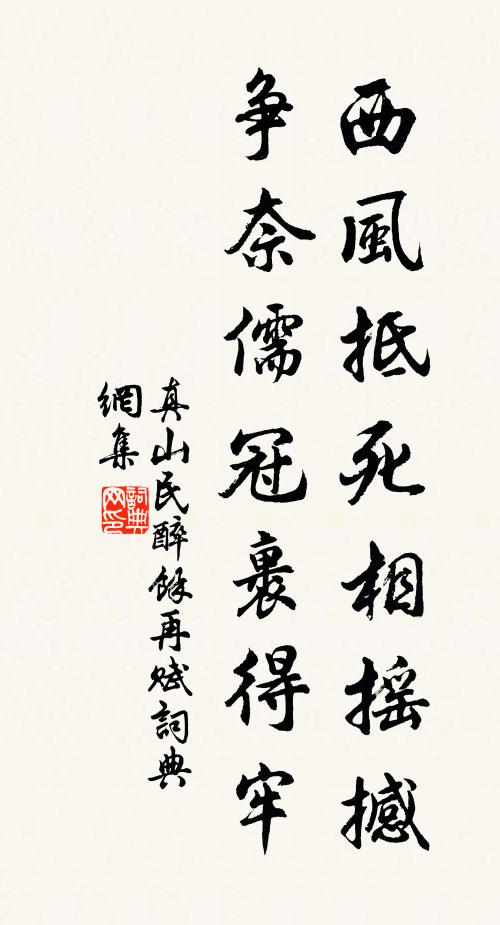 西風抵死相摇撼
争奈儒冠裹得牢
真山民醉餘再賦詞典
網集
詞典
网印